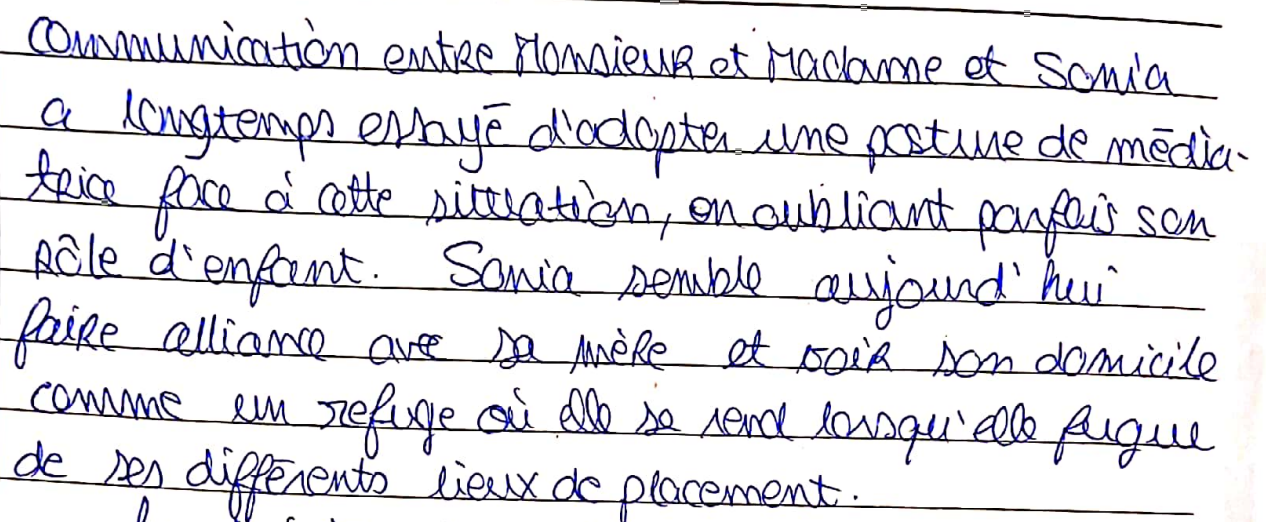 communication entre Monsieur et Madame et Sonia
a longtemps essayé d'adopter une posture de média-
trice face à cette situation, en oubliant parfois son
rôle d'enfant. Sonia semble aujourd'hui
faire alliance avec sa mère et voir son domicile
comme un refuge où elle se rend lorsqu'elle fugue
de ses différents lieux de placement.